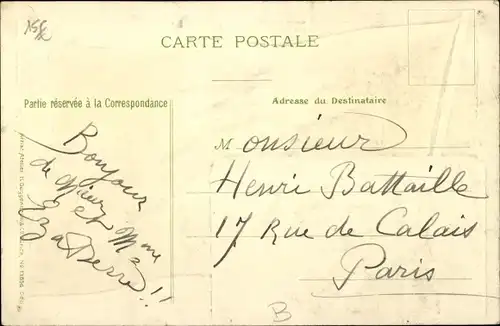 CARTE POSTALE
Partie réservée à la Correspondance
Adresse du Destinataire
Bonjour
de
et Mme
!!
Monsieur
Henri Battaille
17 Rue de Calais
Paris
B